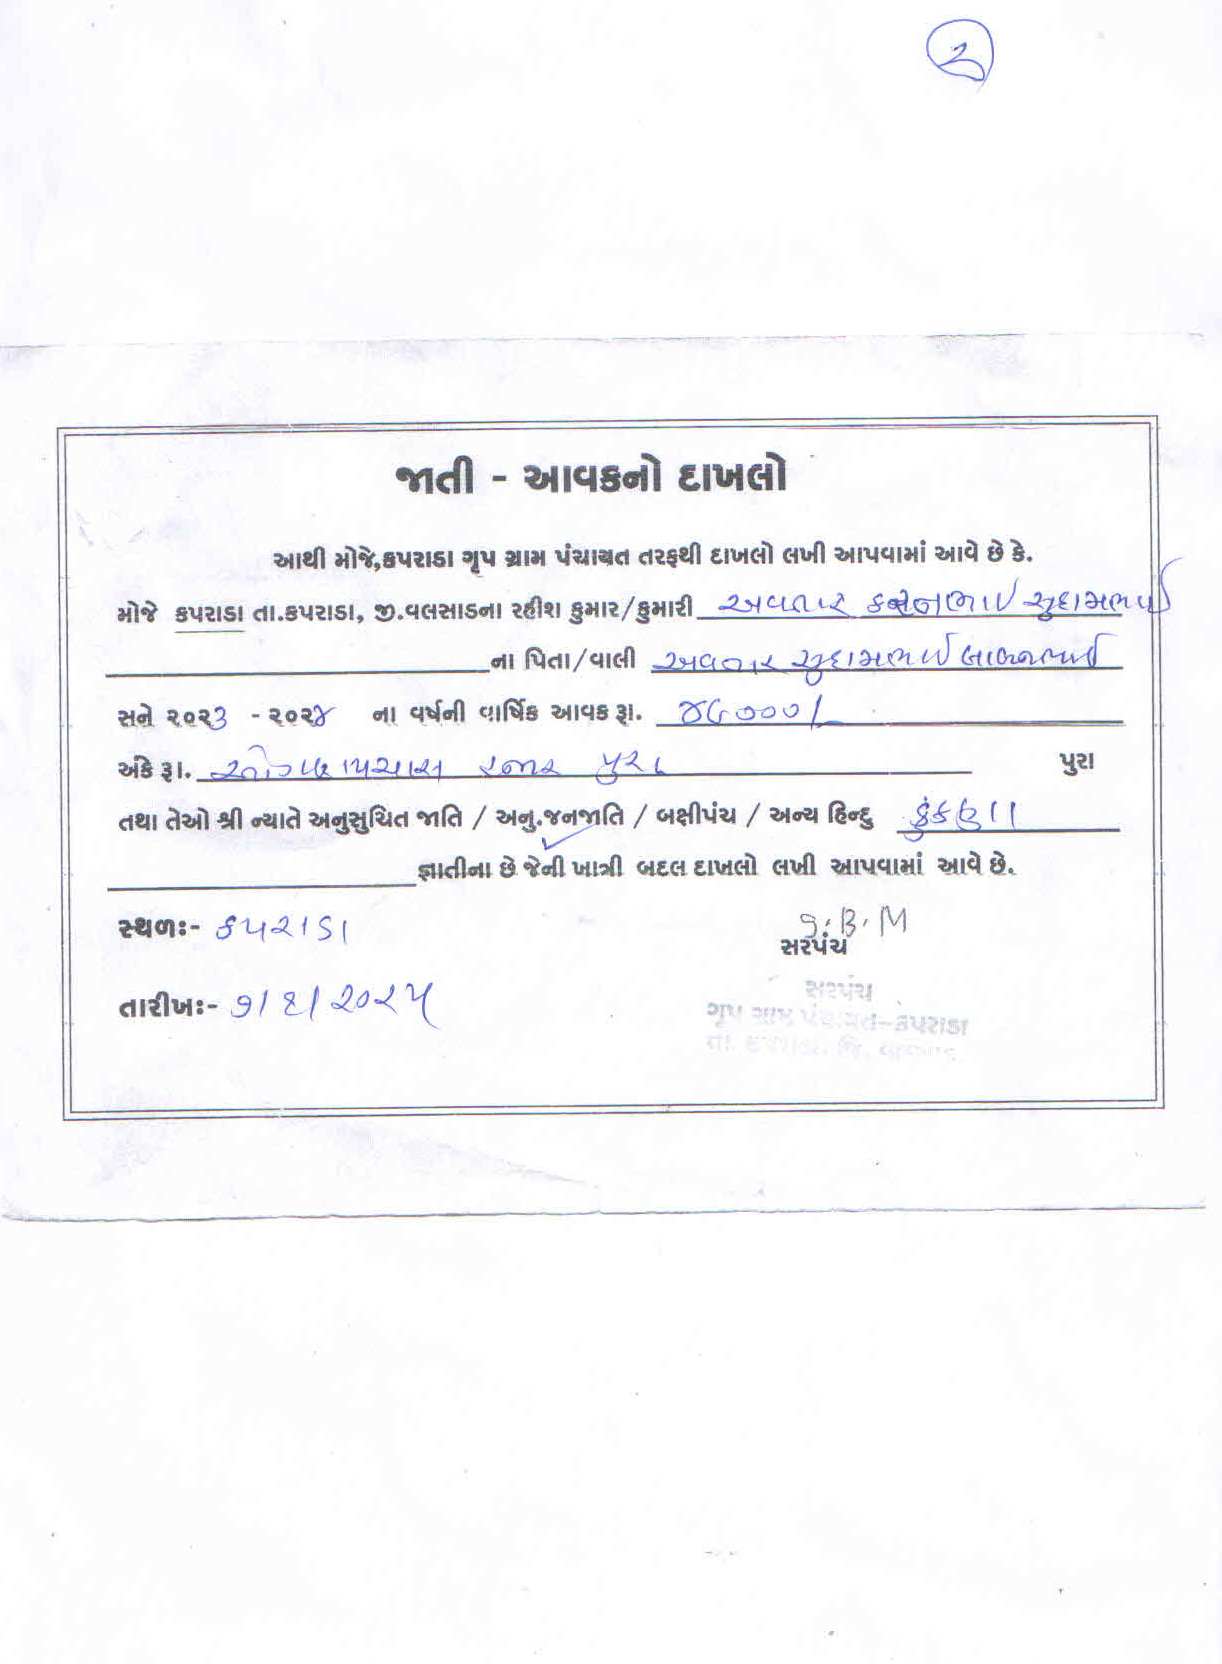 2
જાતી - આવકનો દાખલો
આથી મોજે,કપરાડા ગૃપ ગ્રામ પંચાયત તરફથી દાખલો લખી આપવામાં આવે છે કે.
મોજે કપરાડા તા.કપરાડા, જી.વલસાડના રહીશ કુમાર/કુમારી અવતાર સુદામભાઈ
ના પિતા/વાલી અવતાર સુદામભાઈ
સને ૨૦૨૩ - ૨૦૨૪ ના વર્ષની વાર્ષિક આવક રૂા. ૪૯૦૦૦/
અંકે રૂા. ઓગણપચાસ હજાર પુરા પુરા
તથા તેઓ શ્રી ન્યાતે અનુસુચિત જાતિ / અનુ.જનજાતિ / બક્ષીપંચ / અન્ય હિન્દુ કુંકણા
જ્ઞાતીના છે જેની ખાત્રી બદલ દાખલો લખી આપવામાં આવે છે.
સ્થળઃ- કપરાડા
સરપંચ
તારીખઃ- ૭/૬/૨૦૨૫
સરપંચ
ગૃપ ગ્રામ પંચાયત-કપરાડા
તા. કપરાડા, જિ. વલસાડ